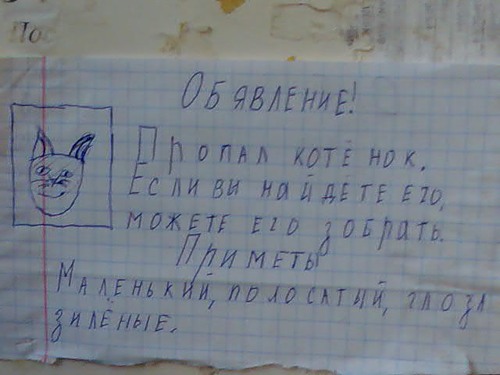 Пос
ОБЯВЛЕНИЕ!
ПРОПАЛ КОТЁНОК.
ЕСЛИ ВИ НАЙДЁТЕ ЕГО,
МОЖЕТЕ ЕГО ЗОБРАТЬ.
ПРИМЕТЫ
МАЛЕНЬКИЙ, ПОЛОСАТЫЙ, ГЛОЗА
ЗИЛЁНЫЕ.